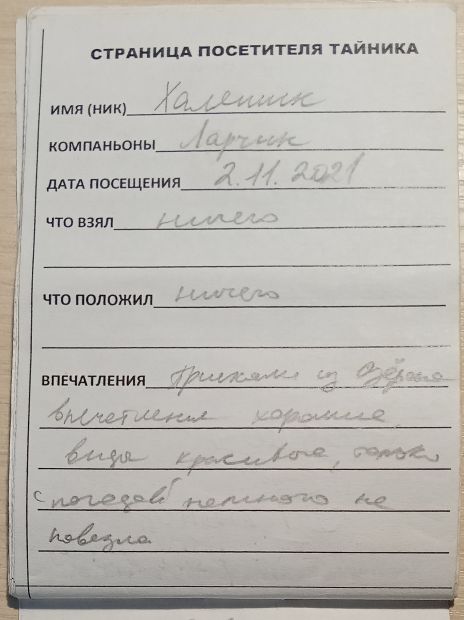 СТРАНИЦА ПОСЕТИТЕЛЯ ТАЙНИКА
ИМЯ (НИК) Халетик
КОМПАНЬОНЫ Ларчик
ДАТА ПОСЕЩЕНИЯ 2.11.2021
ЧТО ВЗЯЛ ничего
ЧТО ПОЛОЖИЛ ничего
ВПЕЧАТЛЕНИЯ Приехали из Озёрска
впечетления хорошие
виды красивые, только
с погодой немного не
повезло